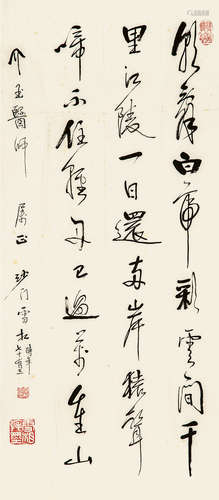 朝辭白帝彩雲間千
里江陵一日還兩岸猿聲
啼不住輕舟已過萬重山
玉醫師 属正 沙门雪松時年七十